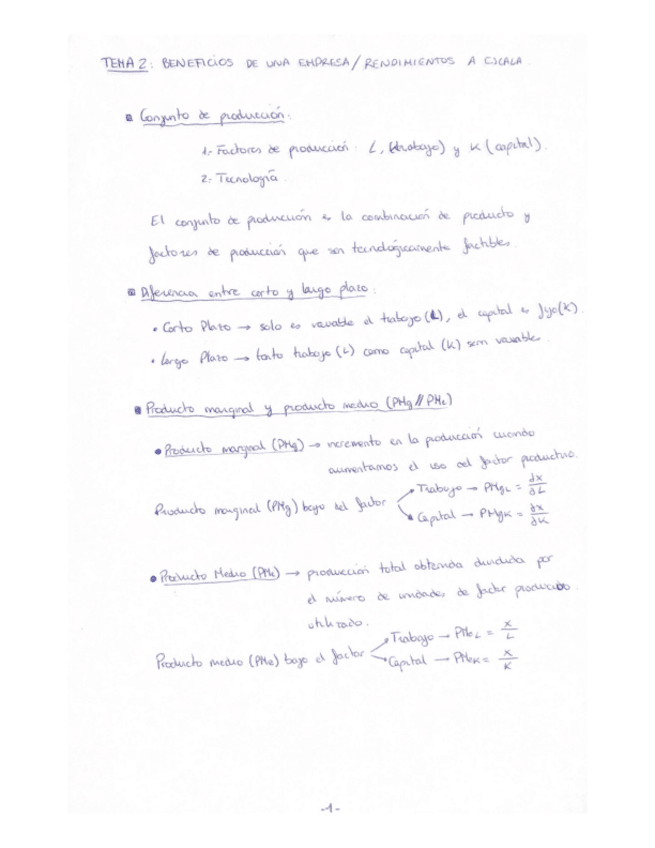 TEMA 2: BENEFICIOS DE UNA EMPRESA/RENDIMIENTOS A ESCALA.
Conjunto de producción:
1.- Factores de producción: L, (trabajo) y K (capital).
2.- Tecnología.
El conjunto de producción es la combinación de producto y
factores de producción que son tecnológicamente factibles.
Diferencia entre corto y largo plazo:
• Corto Plazo → solo es variable el trabajo (L), el capital es fijo (K).
• Largo Plazo → tanto trabajo (L) como capital (K) sem variable.
Producto marginal y producto medio (PMg // PMe)
• Producto marginal (PMg) → incremento en la producción cuando
aumentamos el uso del factor productivo.
Producto marginal (PMg) bajo del factor
Trabajo → PMgL = ∂X/∂L
Capital → PMgK = ∂X/∂K
• Producto Medio (PMe) → producción total obtenida dividida por
el número de unidades de factor producido
utilizado.
Producto medio (PMe) bajo el factor
Trabajo → PMeL = X/L
Capital → PMeK = X/K
-1-